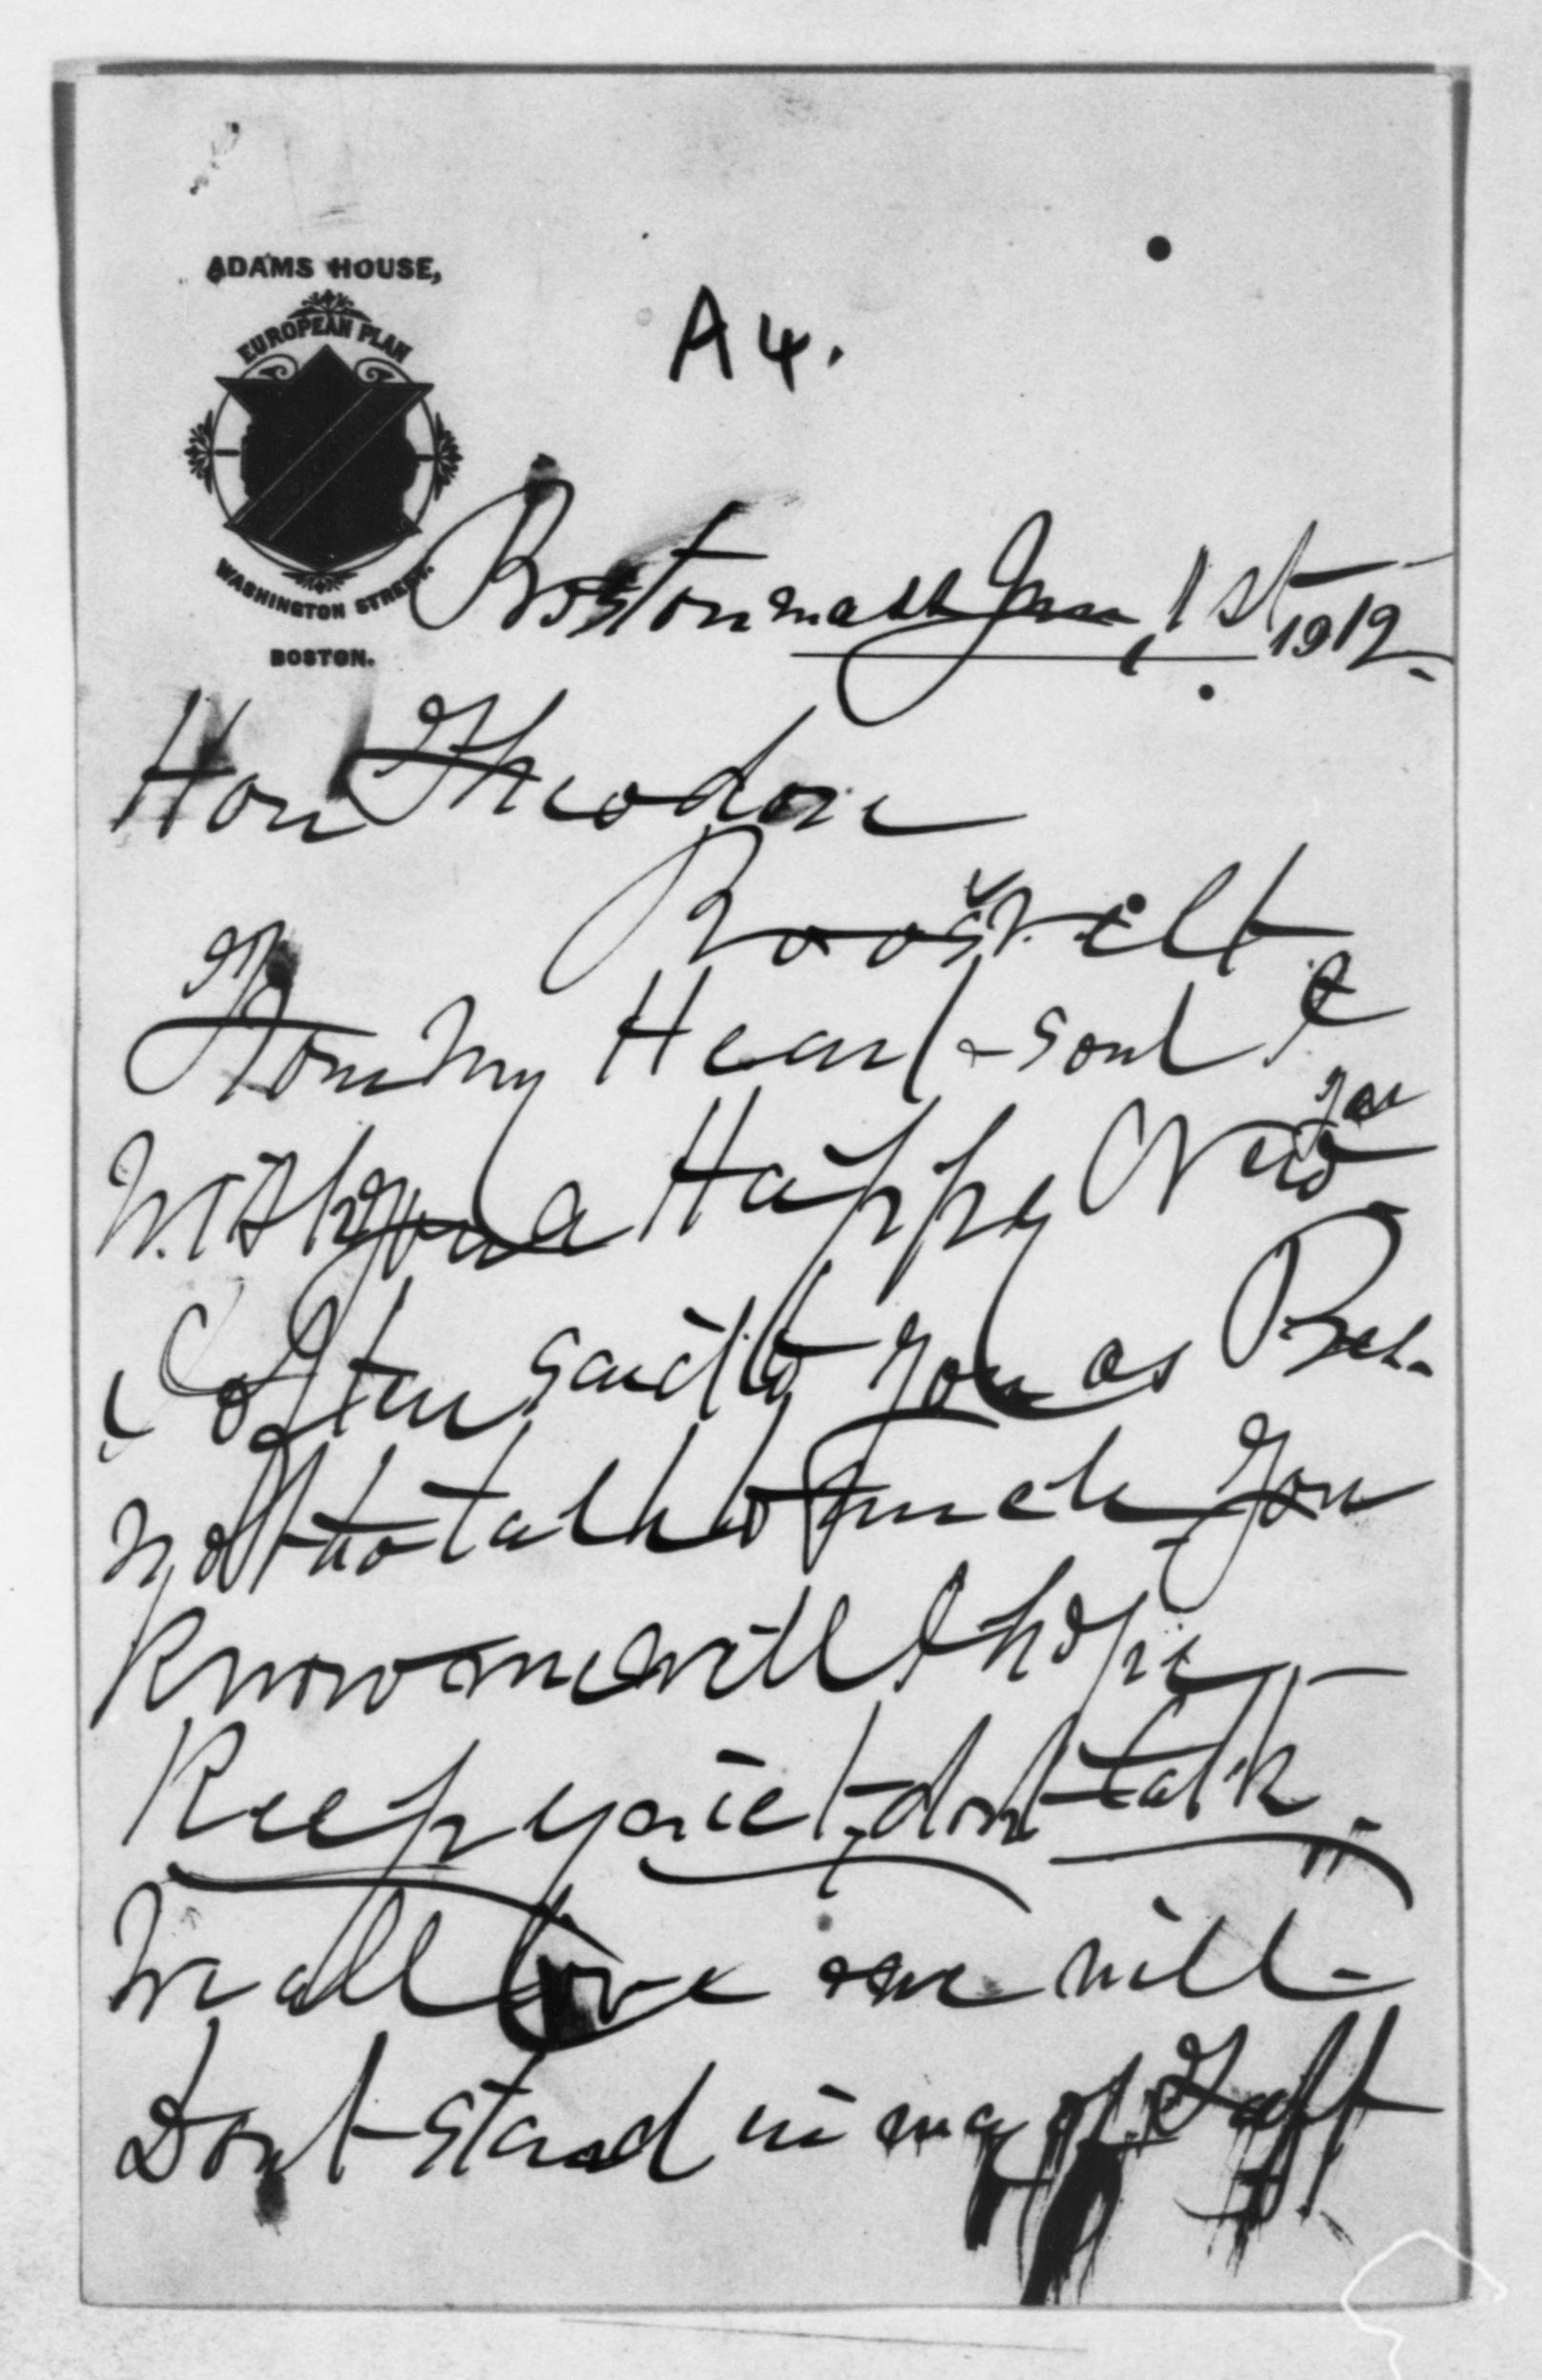 ADAMS HOUSE,
EUROPEAN PLAN
WASHINGTON STREET.
BOSTON.
A 4.
Boston mass Jan, 1st 1912.
Hon Theodore
Roosvelt
From my Heart & soul I
Wish you a Happy New year
I often said to you as Pres.
not to talk to much you
Know me well I hope
Keep qniet, dont talk.
We all love me will
Dont stand in way of Taft